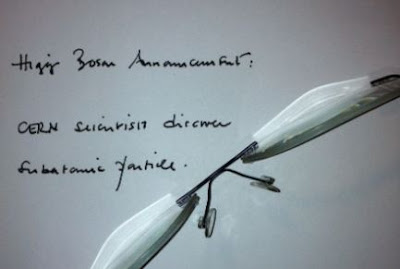 Higgs Boson Announcement:
CERN scientists discover
Subatomic Particle.